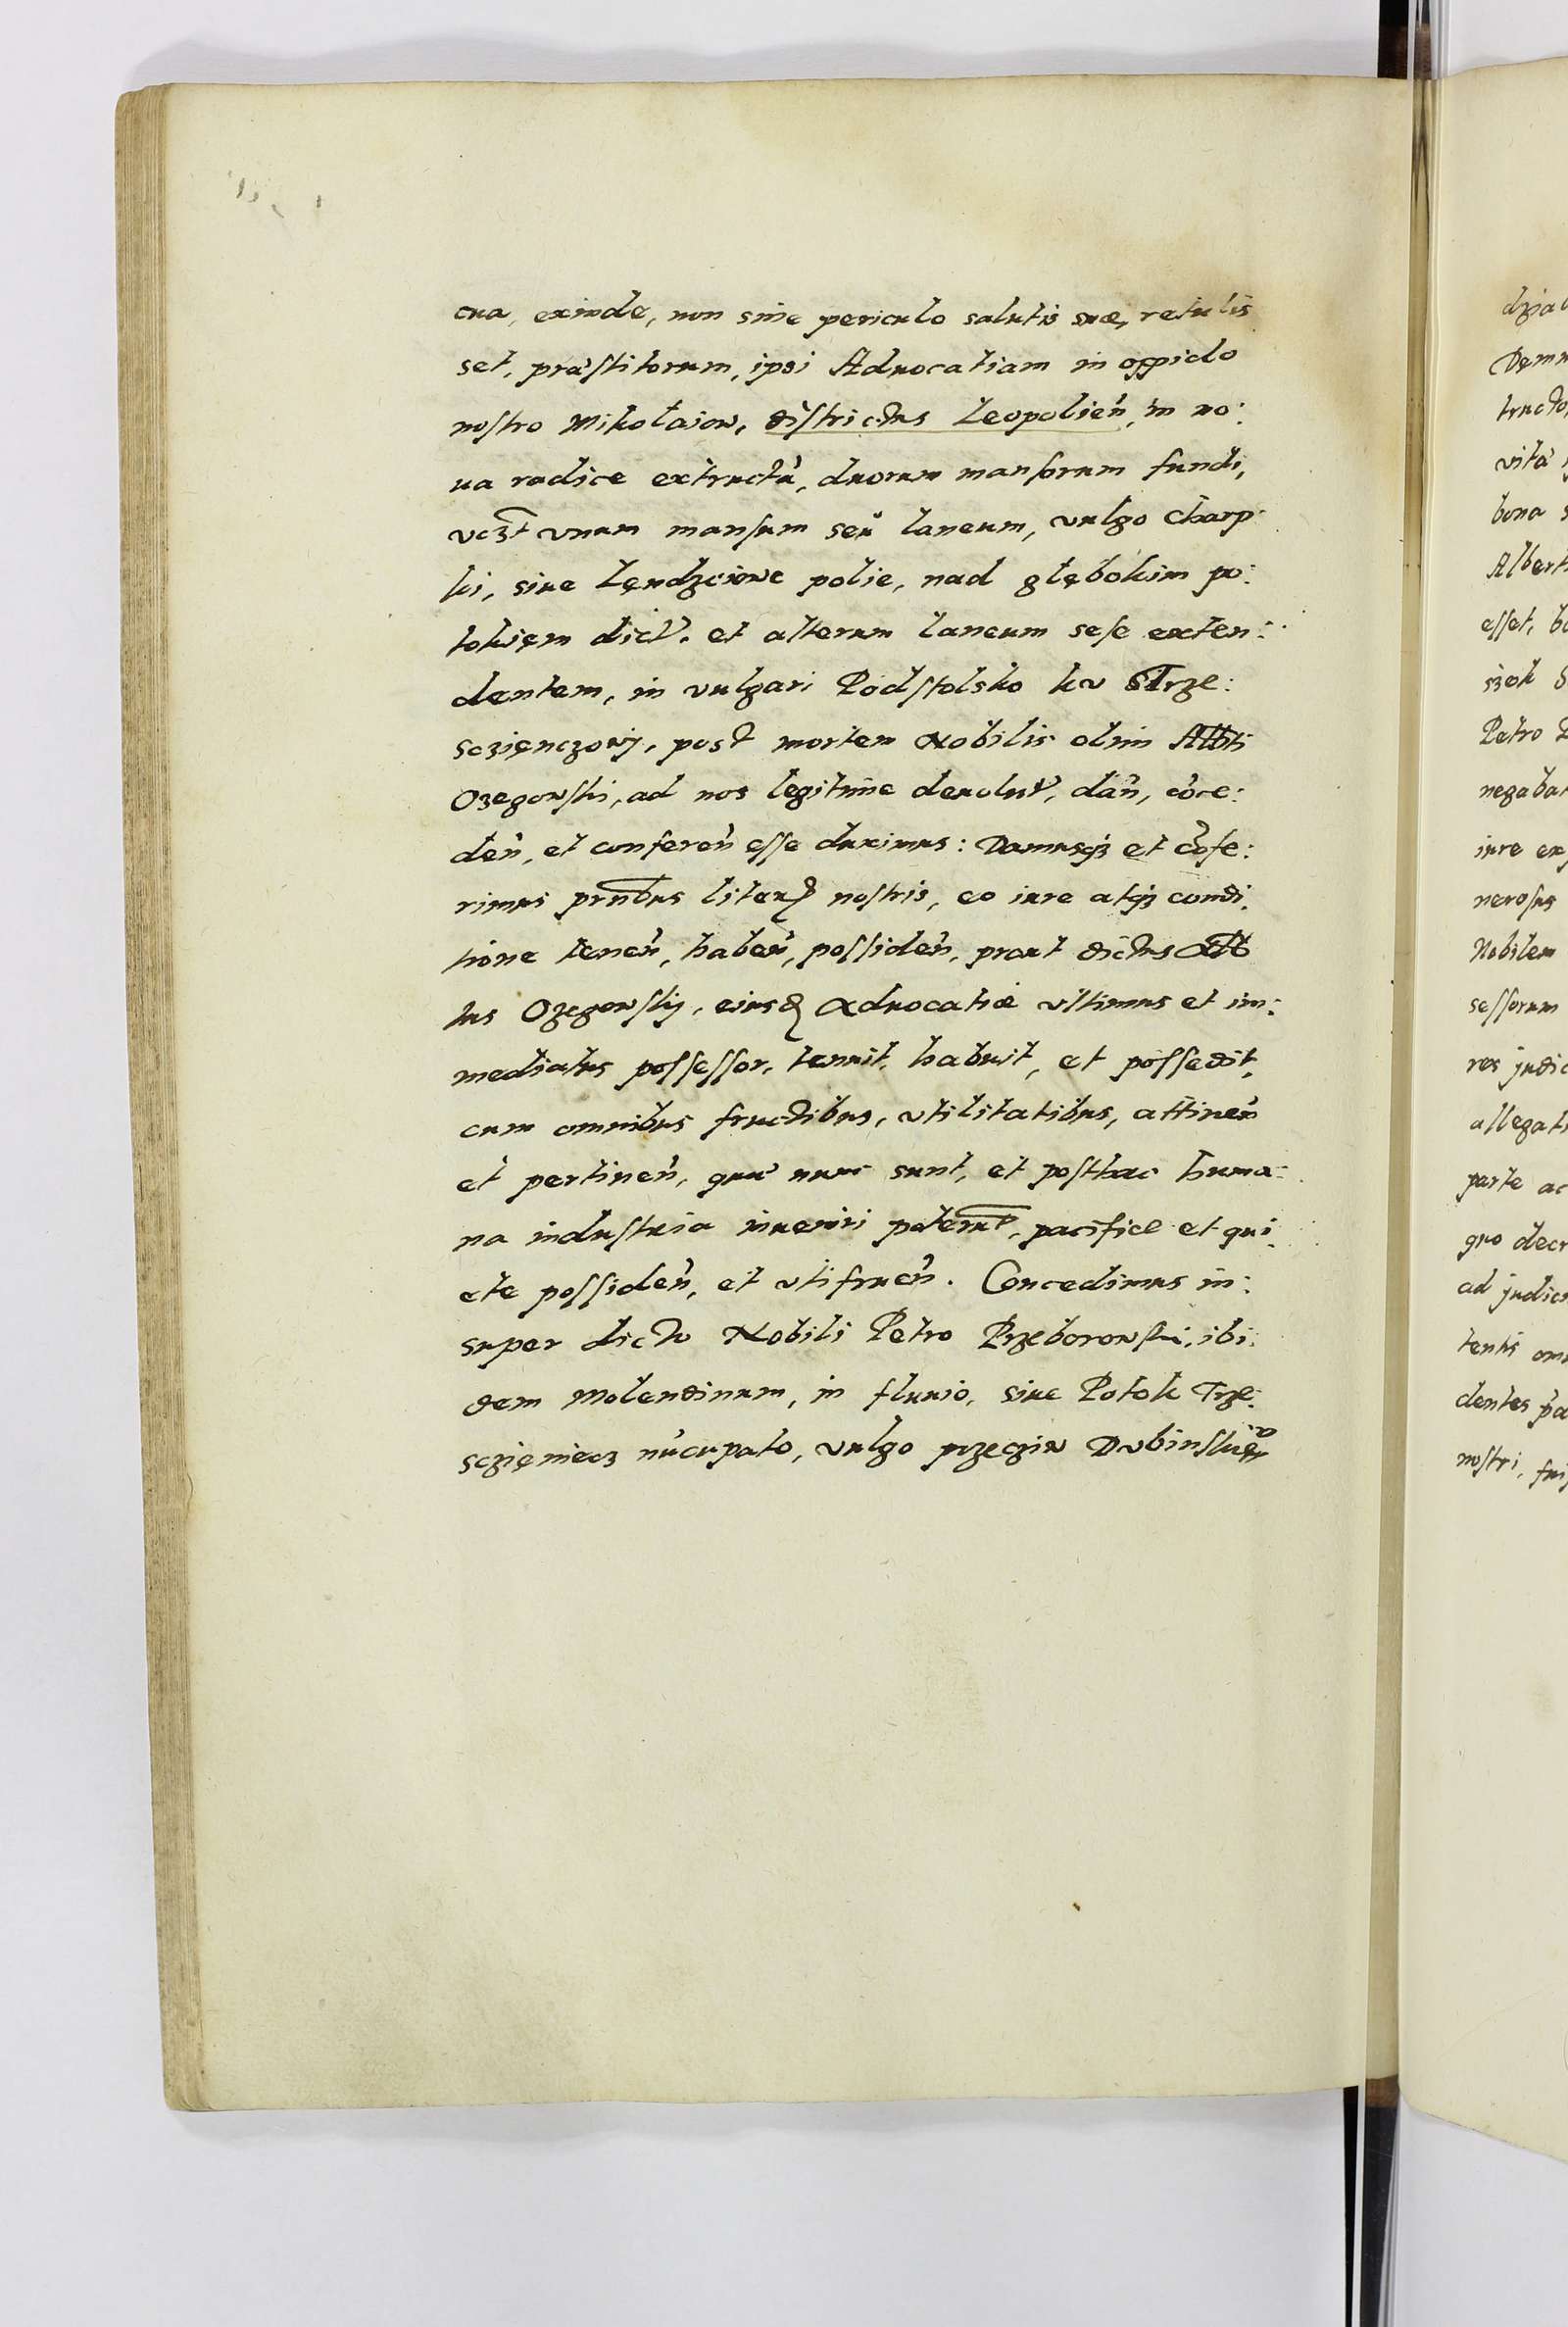 cua, exinde, non sine periculo salutis suæ, retulis
set, præstitorum, ipsi Aduocatiam in oppido
nostro Mikołaiow, districtus Leopolieñ, in no:
ua radice extructã, duorum mansorum fundi,
vcꝫt vnum mansum seu laneum, vulgo Charp
ki, siue Lędzciowe polie, nad głębokim po:
tokięm dict. et alterum laneum sese exten:
dentem, in vulgari Podstolsko ku Strze:
sczięnczowj, post mortem Nobilis olim Albti
Ozegowski, ad nos legitime deuolut, dañ, cõce:
deñ, et confereñ esse duximus: Damusqꝫ et cõfe:
rimus prñtibus literis nostris, eo iure atqꝫ condi:
tione teneñ, habeñ, possideñ, prout dictus Alb
tus Ozegowskj, eiusd Aduocatiæ vltimus et im:
mediatus possessor, tenuit, habuit, et possedit,
cum omnibus fructibus, vtilitatibus, attineñ
et pertineñ, quæ nunc sunt, et posthac huma:
na industria inueniri poterunt, pacifice et qui
ete possideñ, et vtifrueñ. Concedimus in:
super dicto Nobili Petro Przeborowski, ibi:
dem Molendinum, in fluuio, siue Potok Trze:
sczięniecz nũcupato, vulgo przecziw
dzia
tructo,
vita
bona
Albert
esset, bo
Petro
negabat
iure
nerosus
Nobilem
sessorum
res judic
allegati
parte ac
quo decr
ad judici
tentis om
dentes
nostri,